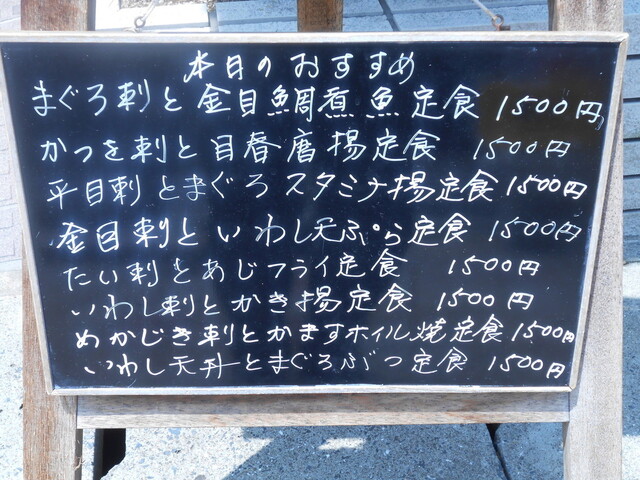 本日のおすすめ
まぐろ刺と金目鯛煮魚定食 1500円
かつを刺と目春唐揚定食 1500円
平目刺とまぐろスタミナ揚定食 1500円
金目刺といわし天ぷら定食 1500円
たい刺とあじフライ定食 1500円
いわし刺とかき揚定食 1500円
めかじき刺とかますホイル焼定食 1500円
いわし天丼とまぐろぶつ定食 1500円